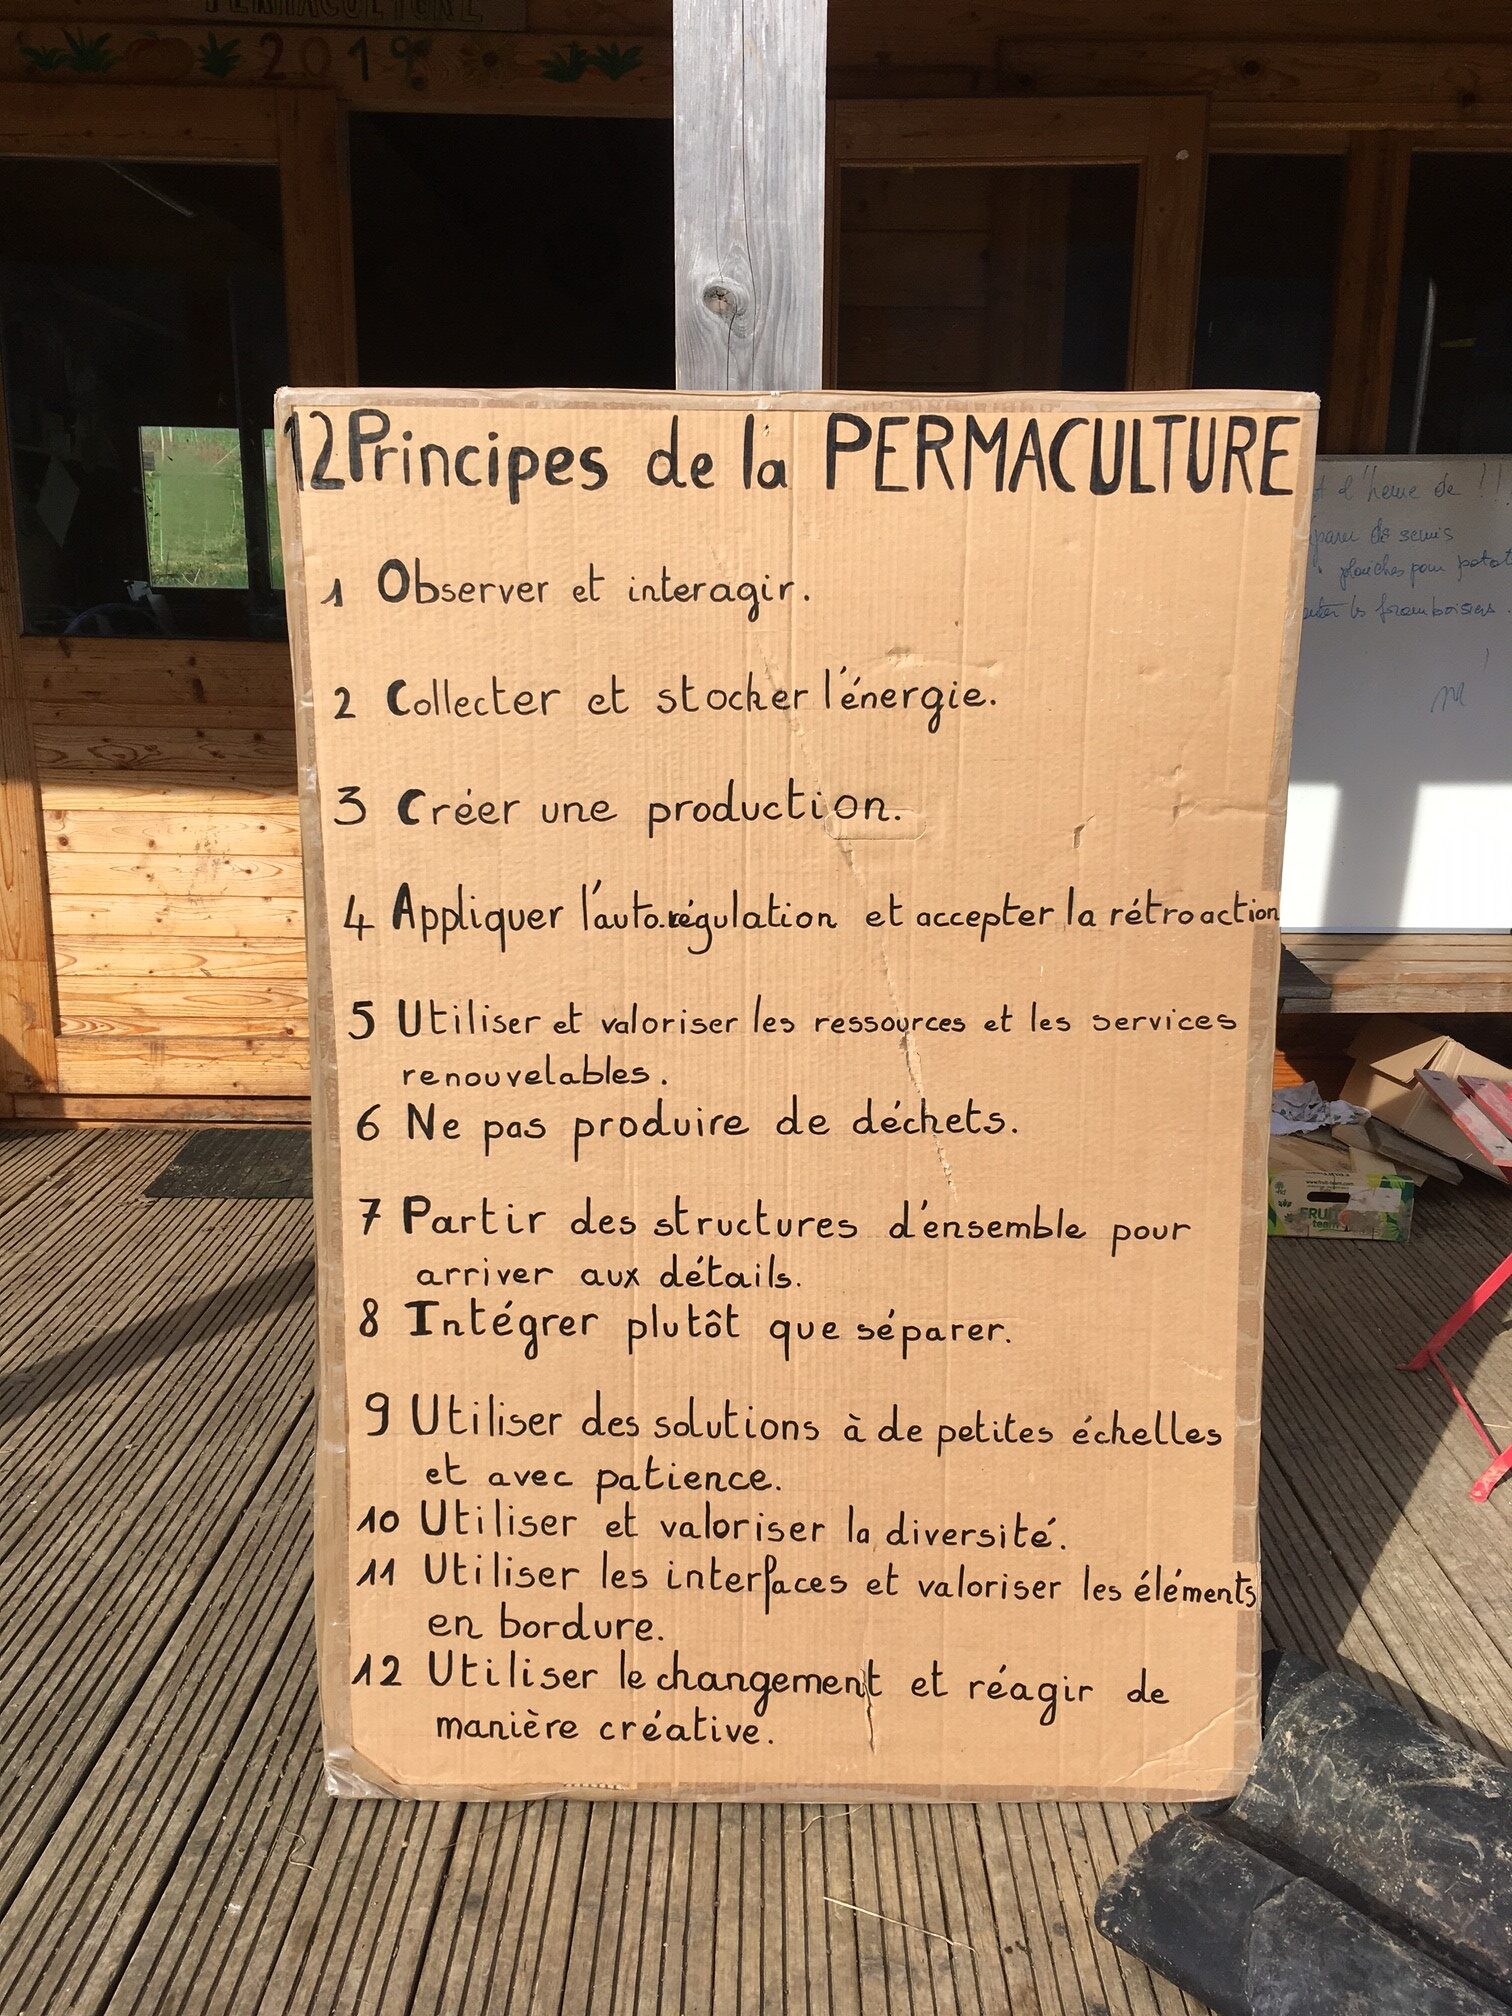 PERMACULTURE
2019
12 Principes de la PERMACULTURE
1 Observer et interagir.
2 Collecter et stocker l'énergie.
3 Créer une production.
4 Appliquer l'auto.régulation et accepter la rétroaction
5 Utiliser et valoriser les ressources et les services
renouvelables.
6 Ne pas produire de déchets.
7 Partir des structures d'ensemble pour
arriver aux détails.
8 Intégrer plutôt que séparer.
9 Utiliser des solutions à de petites échelles
et avec patience.
10 Utiliser et valoriser la diversité.
11 Utiliser les interfaces et valoriser les éléments
en bordure.
12 Utiliser le changement et réagir de
manière créative.
de !!!
de semis
pour
framboisiers
FRUIT
team